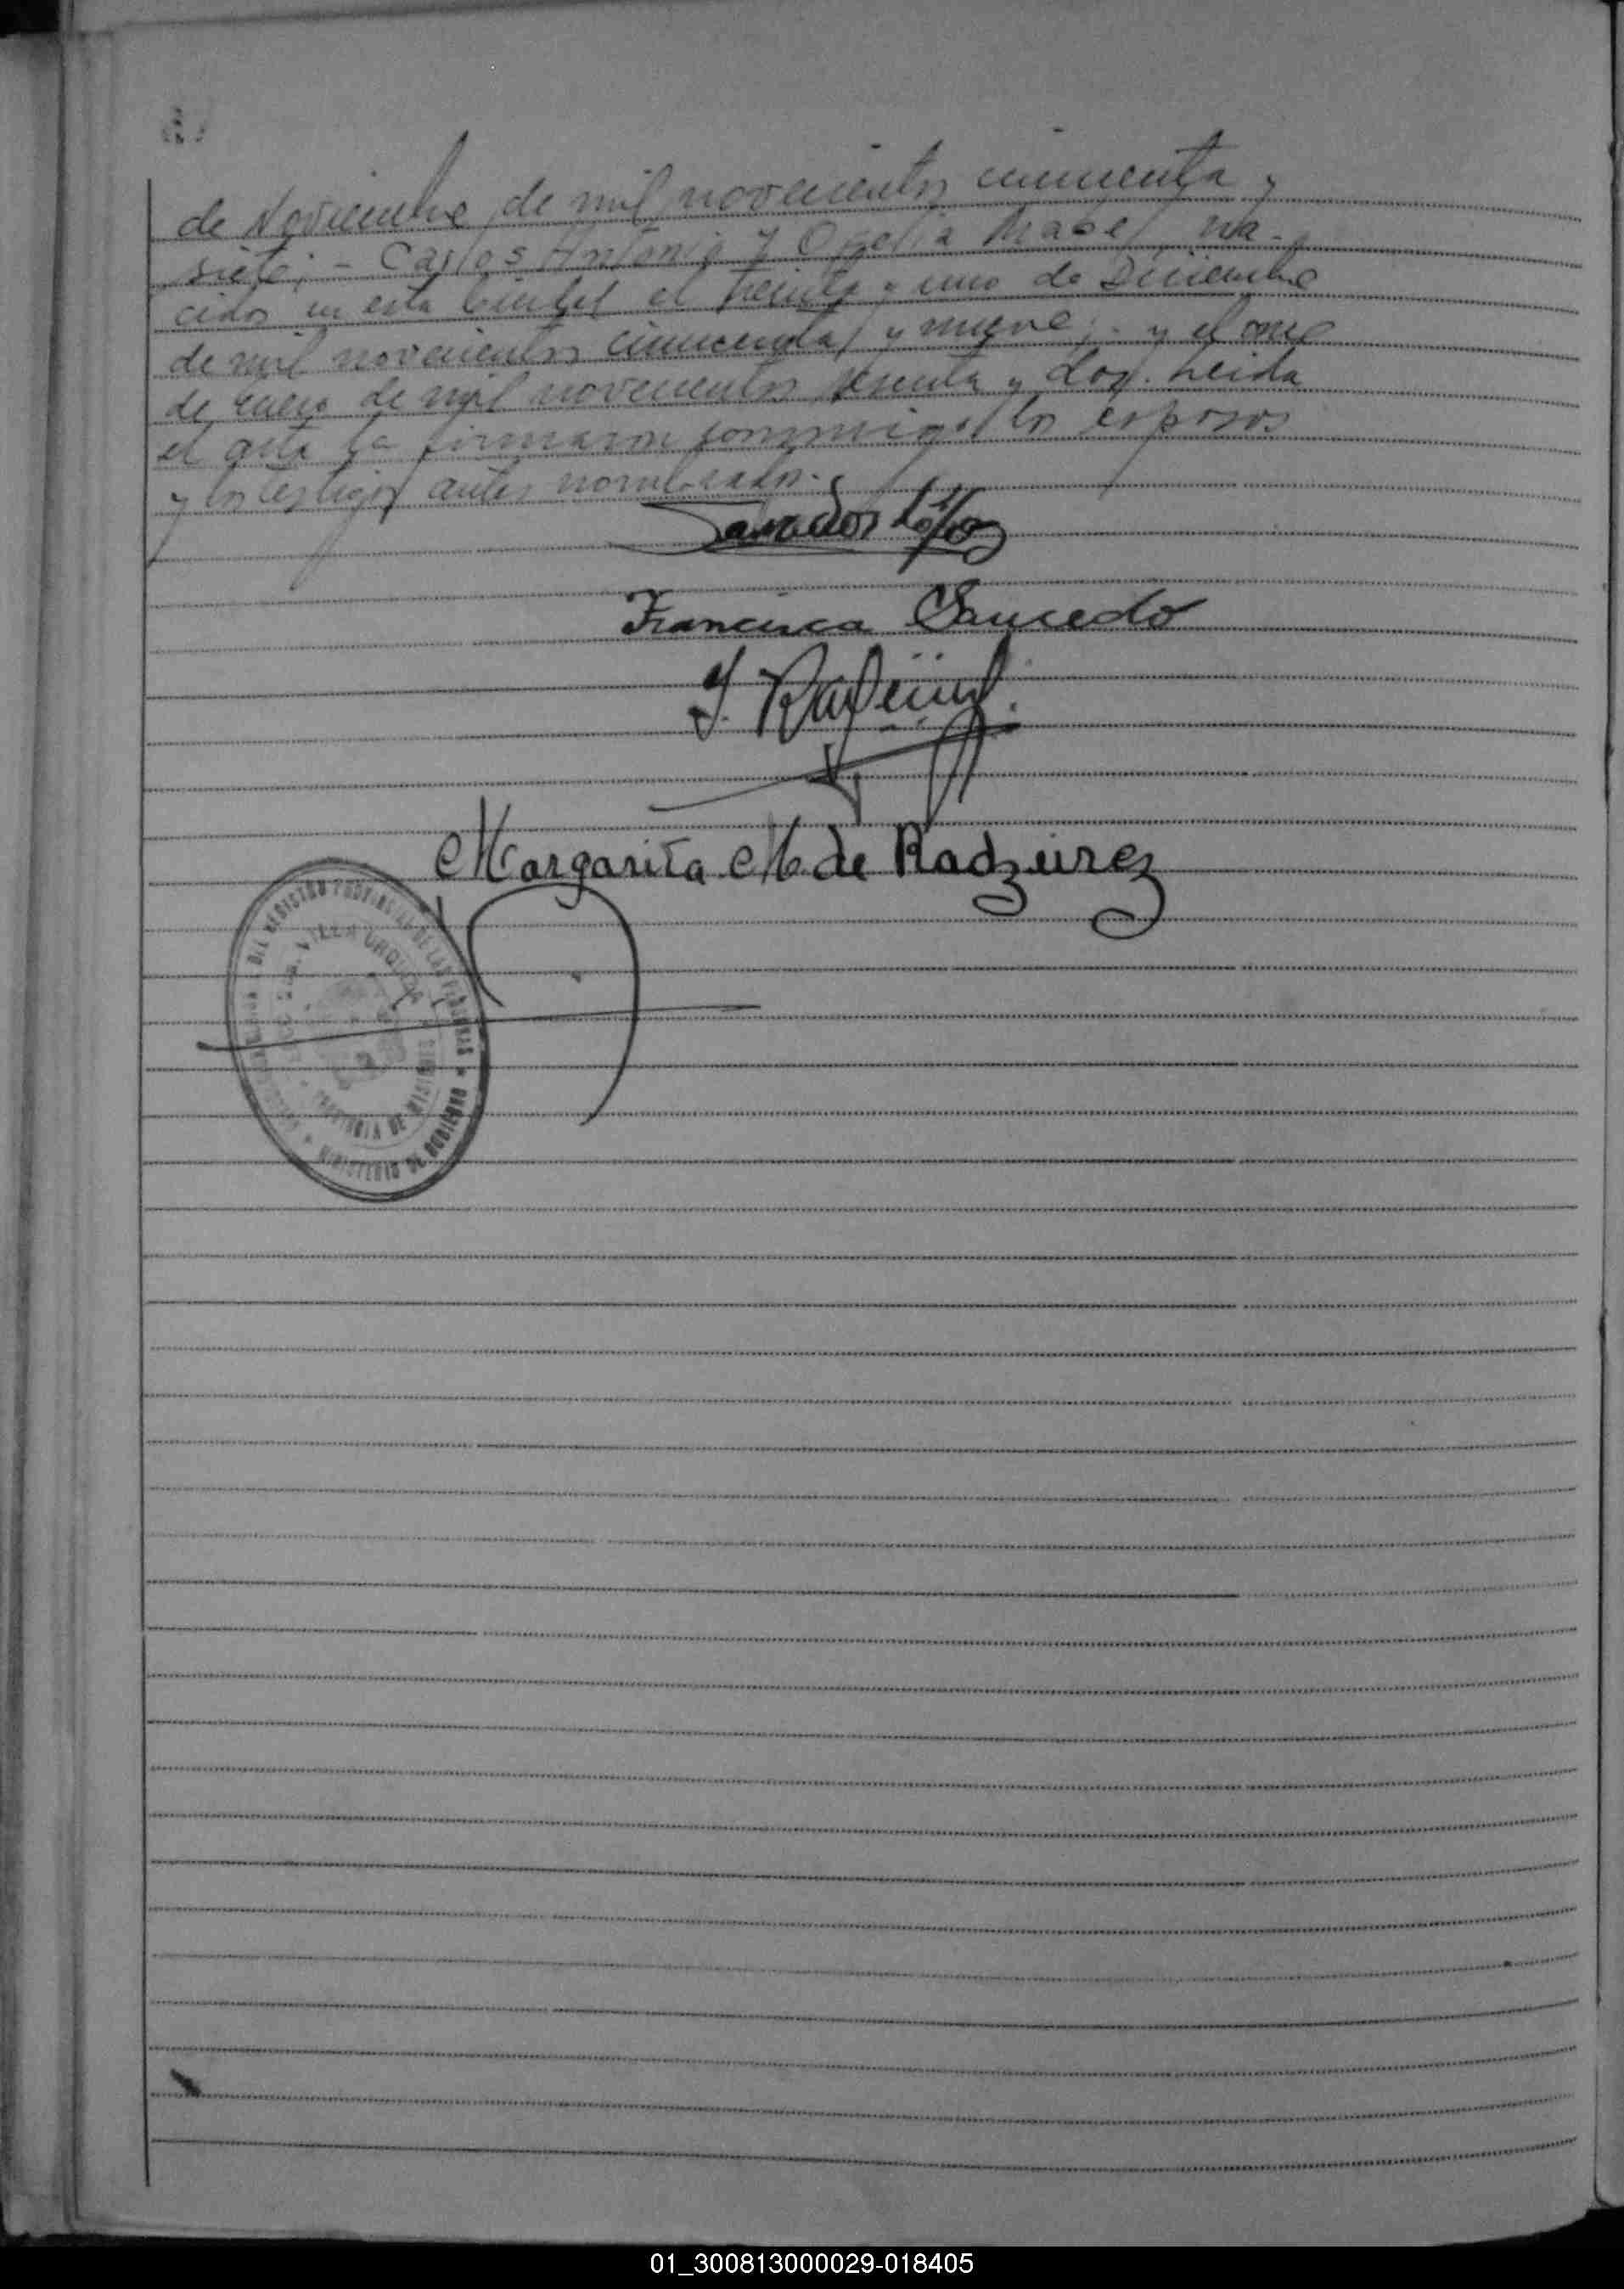 de Noviembre de mil novecientos cincuenta y
siete; - Carlos Antonio y Ofelia Mabel, na-
cidos en esta Ciudad el treinta y uno de Diciembre
de mil novecientos cincuenta y nueve; - y el once
de enero de mil novecientos sesenta y dos. Leida
el acta la firmaron conmigo los esposos
y los testigos antes nombrados.-
Francisca Saucedo
Margarita M. de Radzeirez
DEL REGISTRO PROVINCIAL DE LAS PERSONAS
VILLA URQUIZA
PROVINCIA DE MISIONES
MINISTERIO DE GOBIERNO
01_300813000029-018405